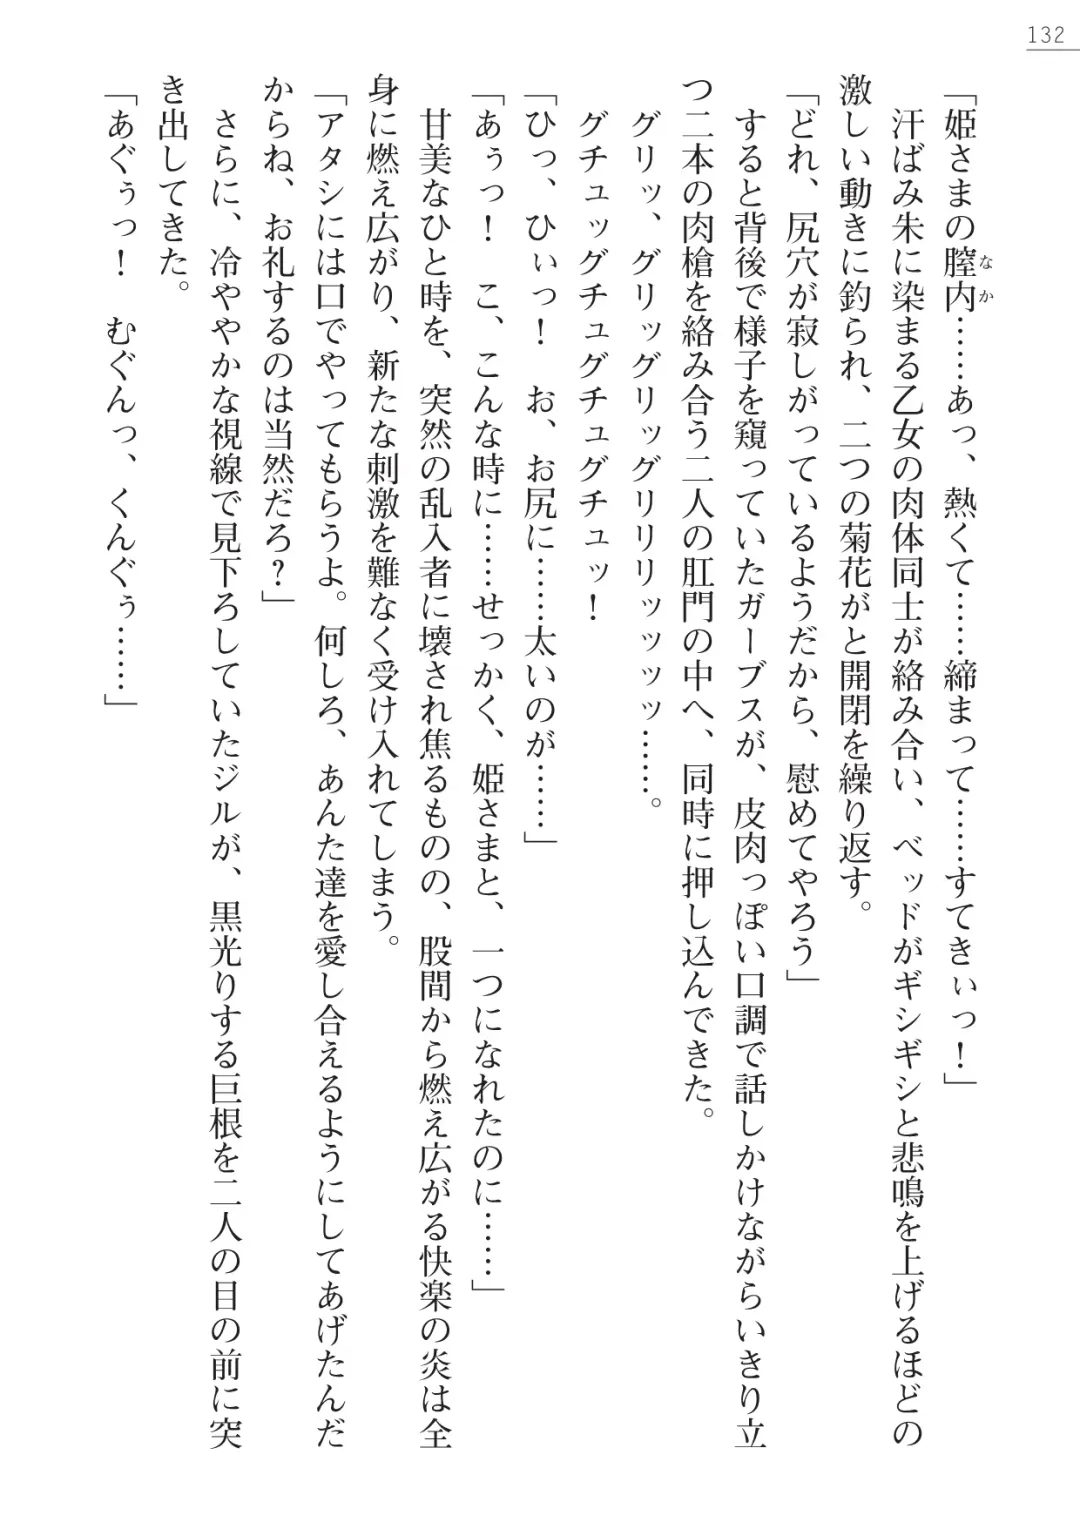 132
「姫さまの膣内……あっ、熱くて……締まって……すてきぃっ！」
なか
汗ばみ朱に染まる乙女の肉体同士が絡み合い、ベッドがギシギシと悲鳴を上げるほどの
激しい動きに釣られ、二つの菊花がと開閉を繰り返す。
「どれ、尻穴が寂しがっているようだから、慰めてやろう」
すると背後で様子を窺っていたガーブスが、皮肉っぽい口調で話しかけながらいきり立
つ二本の肉槍を絡み合う二人の肛門の中へ、同時に押し込んできた。
グリッ、グリッグリッグリリリッッッ……。
グチュッグチュグチュグチュッ！
「ひっ、ひぃっ！　お、お尻に……太いのが……」
「あぅっ！　こ、こんな時に……せっかく、姫さまと、一つになれたのに……」
甘美なひと時を、突然の乱入者に壊され焦るものの、股間から燃え広がる快楽の炎は全
身に燃え広がり、新たな刺激を難なく受け入れてしまう。
「アタシには口でやってもらうよ。何しろ、あんた達を愛し合えるようにしてあげたんだ
からね、お礼するのは当然だろ？」
さらに、冷ややかな視線で見下ろしていたジルが、黒光りする巨根を二人の目の前に突
き出してきた。
「あぐぅっ！　むぐんっ、くんぐぅ……」